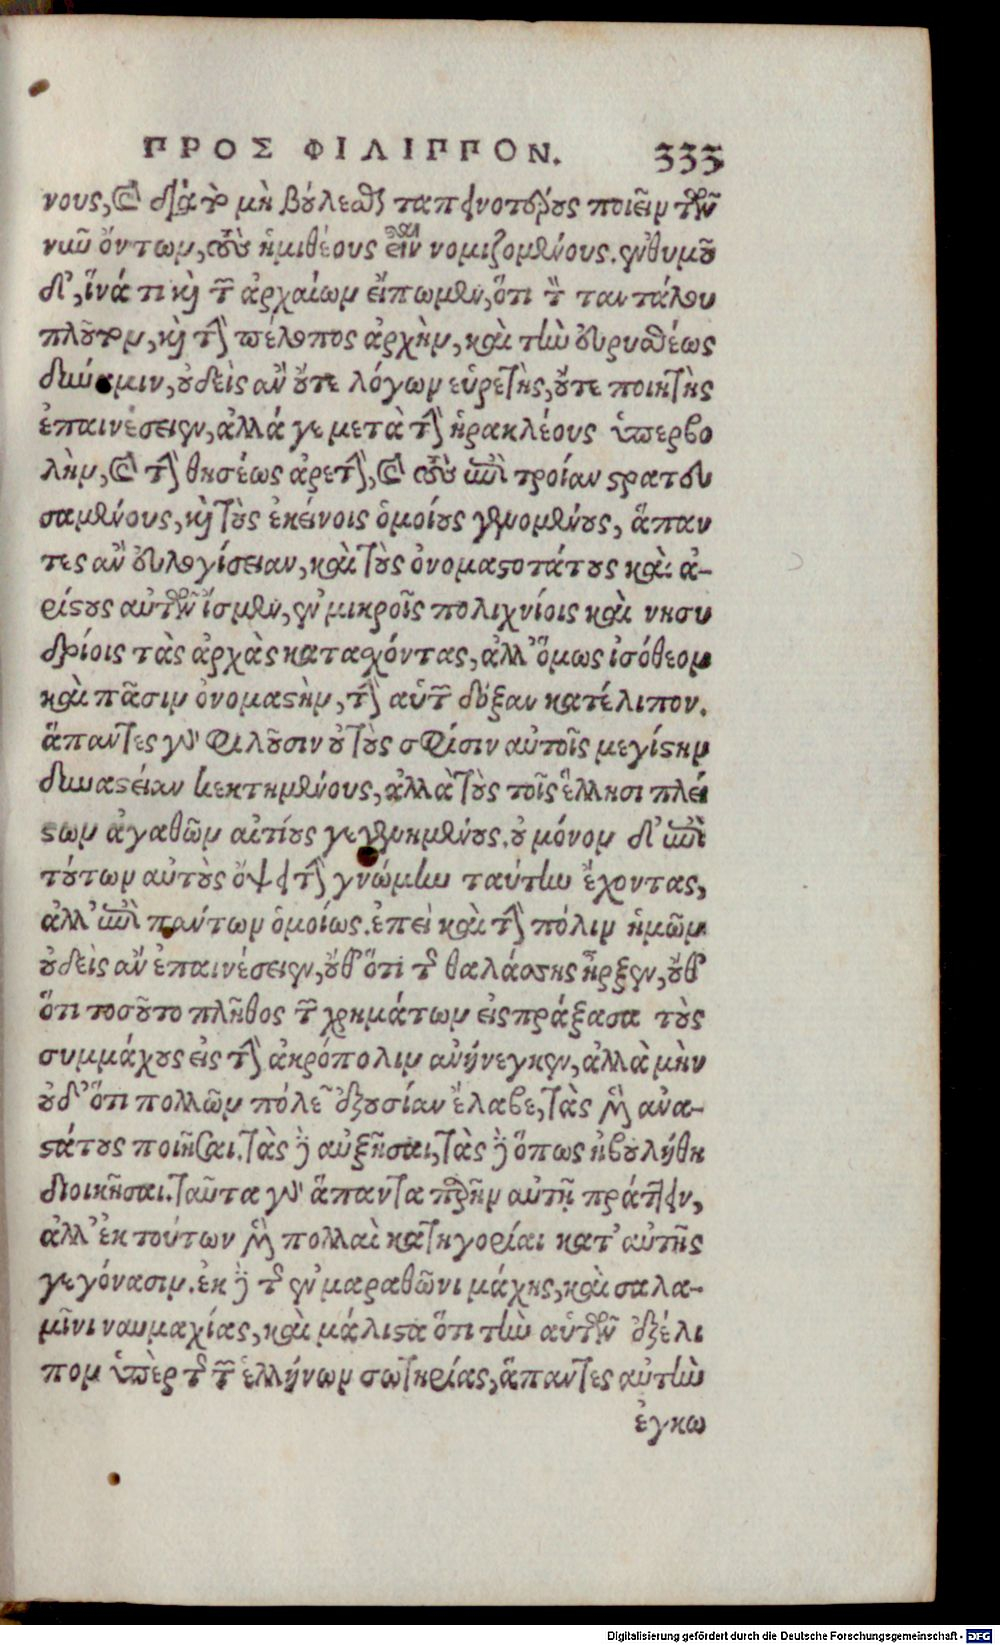 ΠΡΟΣ ΦΙΛΙΠΠΟΝ. 333
νους, καὶ διὰ τὸ μὴ βούλεσθαι ταπεινοτέρους ποιεῖν τῶν
νῦν ὄντων, τοὺς ἡμιθέους εἶναι νομιζομένους. ἐνθυμοῦ
δ', ἵνά τι καὶ τῶν ἀρχαίων εἴπωμεν, ὅτι τὸν ταντάλου
πλοῦτον, καὶ τὴν πέλοπος ἀρχὴν, καὶ τὴν εὐρυσθέως
δύναμιν, οὐδεὶς ἂν οὔτε λόγων εὑρετὴς, οὔτε ποιητὴς
ἐπαινέσειεν, ἀλλά γε μετὰ τὴν ἡρακλέους ὑπερβο
λὴν, καὶ τὴν θησέως ἀρετὴν, καὶ τοὺς ἐπὶ τροίαν στρατευ
σαμένους, καὶ τοὺς ἐκείνοις ὁμοίους γενομένους, ἅπαν
τες ἂν εὐλογίσειαν, καὶ τοὺς ὀνομαστοτάτους καὶ ἀ-
ρίστους αὐτῶν ἴσμεν, ἐν μικροῖς πολιχνίοις καὶ νησυ
δρίοις τὰς ἀρχὰς κατασχόντας, ἀλλ' ὅμως ἰσόθεον
καὶ πᾶσιν ὀνομαστὴν, τὴν αὑτῶν δόξαν κατέλιπον.
ἅπαντες γὰρ φιλοῦσιν οὐ τοὺς σφίσιν αὐτοῖς μεγίστην
δυναστείαν κεκτημένους, ἀλλὰ τοὺς τοῖς ἕλλησι πλεί
στων ἀγαθῶν αἰτίους γεγενημένους. οὐ μόνον δ' ἐπὶ
τούτων αὐτοὺς ὄψει τὴν γνώμην ταύτην ἔχοντας,
ἀλλ' ἐπὶ πάντων ὁμοίως. ἐπεὶ καὶ τὴν πόλιν ἡμῶν
οὐδεὶς ἂν ἐπαινέσειεν, οὔθ' ὅτι τῆς θαλάσσης ἦρξεν, οὔθ'
ὅτι τοσοῦτο πλῆθος τῶν χρημάτων εἰσπράξασα τοὺς
συμμάχους εἰς τὴν ἀκρόπολιν ἀνήνεγκεν, ἀλλὰ μὴν
οὐδ' ὅτι πολλῶν πόλεων ἐξουσίαν ἔλαβε, τὰς μὲν ἀνα-
στάτους ποιῆσαι. τὰς δὲ αὐξῆσαι, τὰς δὲ ὅπως ἠβουλήθη
διοικῆσαι. ταῦτα γὰρ ἅπαντα παρῆν αὐτῇ πράττειν,
ἀλλ' ἐκ τούτων μὲν πολλαὶ κατηγορίαι κατ' αὐτῆς
γεγόνασιν. ἐκ δὲ τῆς ἐν μαραθῶνι μάχης, καὶ σαλα-
μῖνι ναυμαχίας, καὶ μάλιστα ὅτι τὴν αὑτῶν ἐξέλι
πον ὑπὲρ τῆς τῶν ἑλλήνων σωτηρίας, ἅπαντες αὐτὴν
ἐγκω
Digitalisierung gefördert durch die Deutsche Forschungsgemeinschaft - DFG